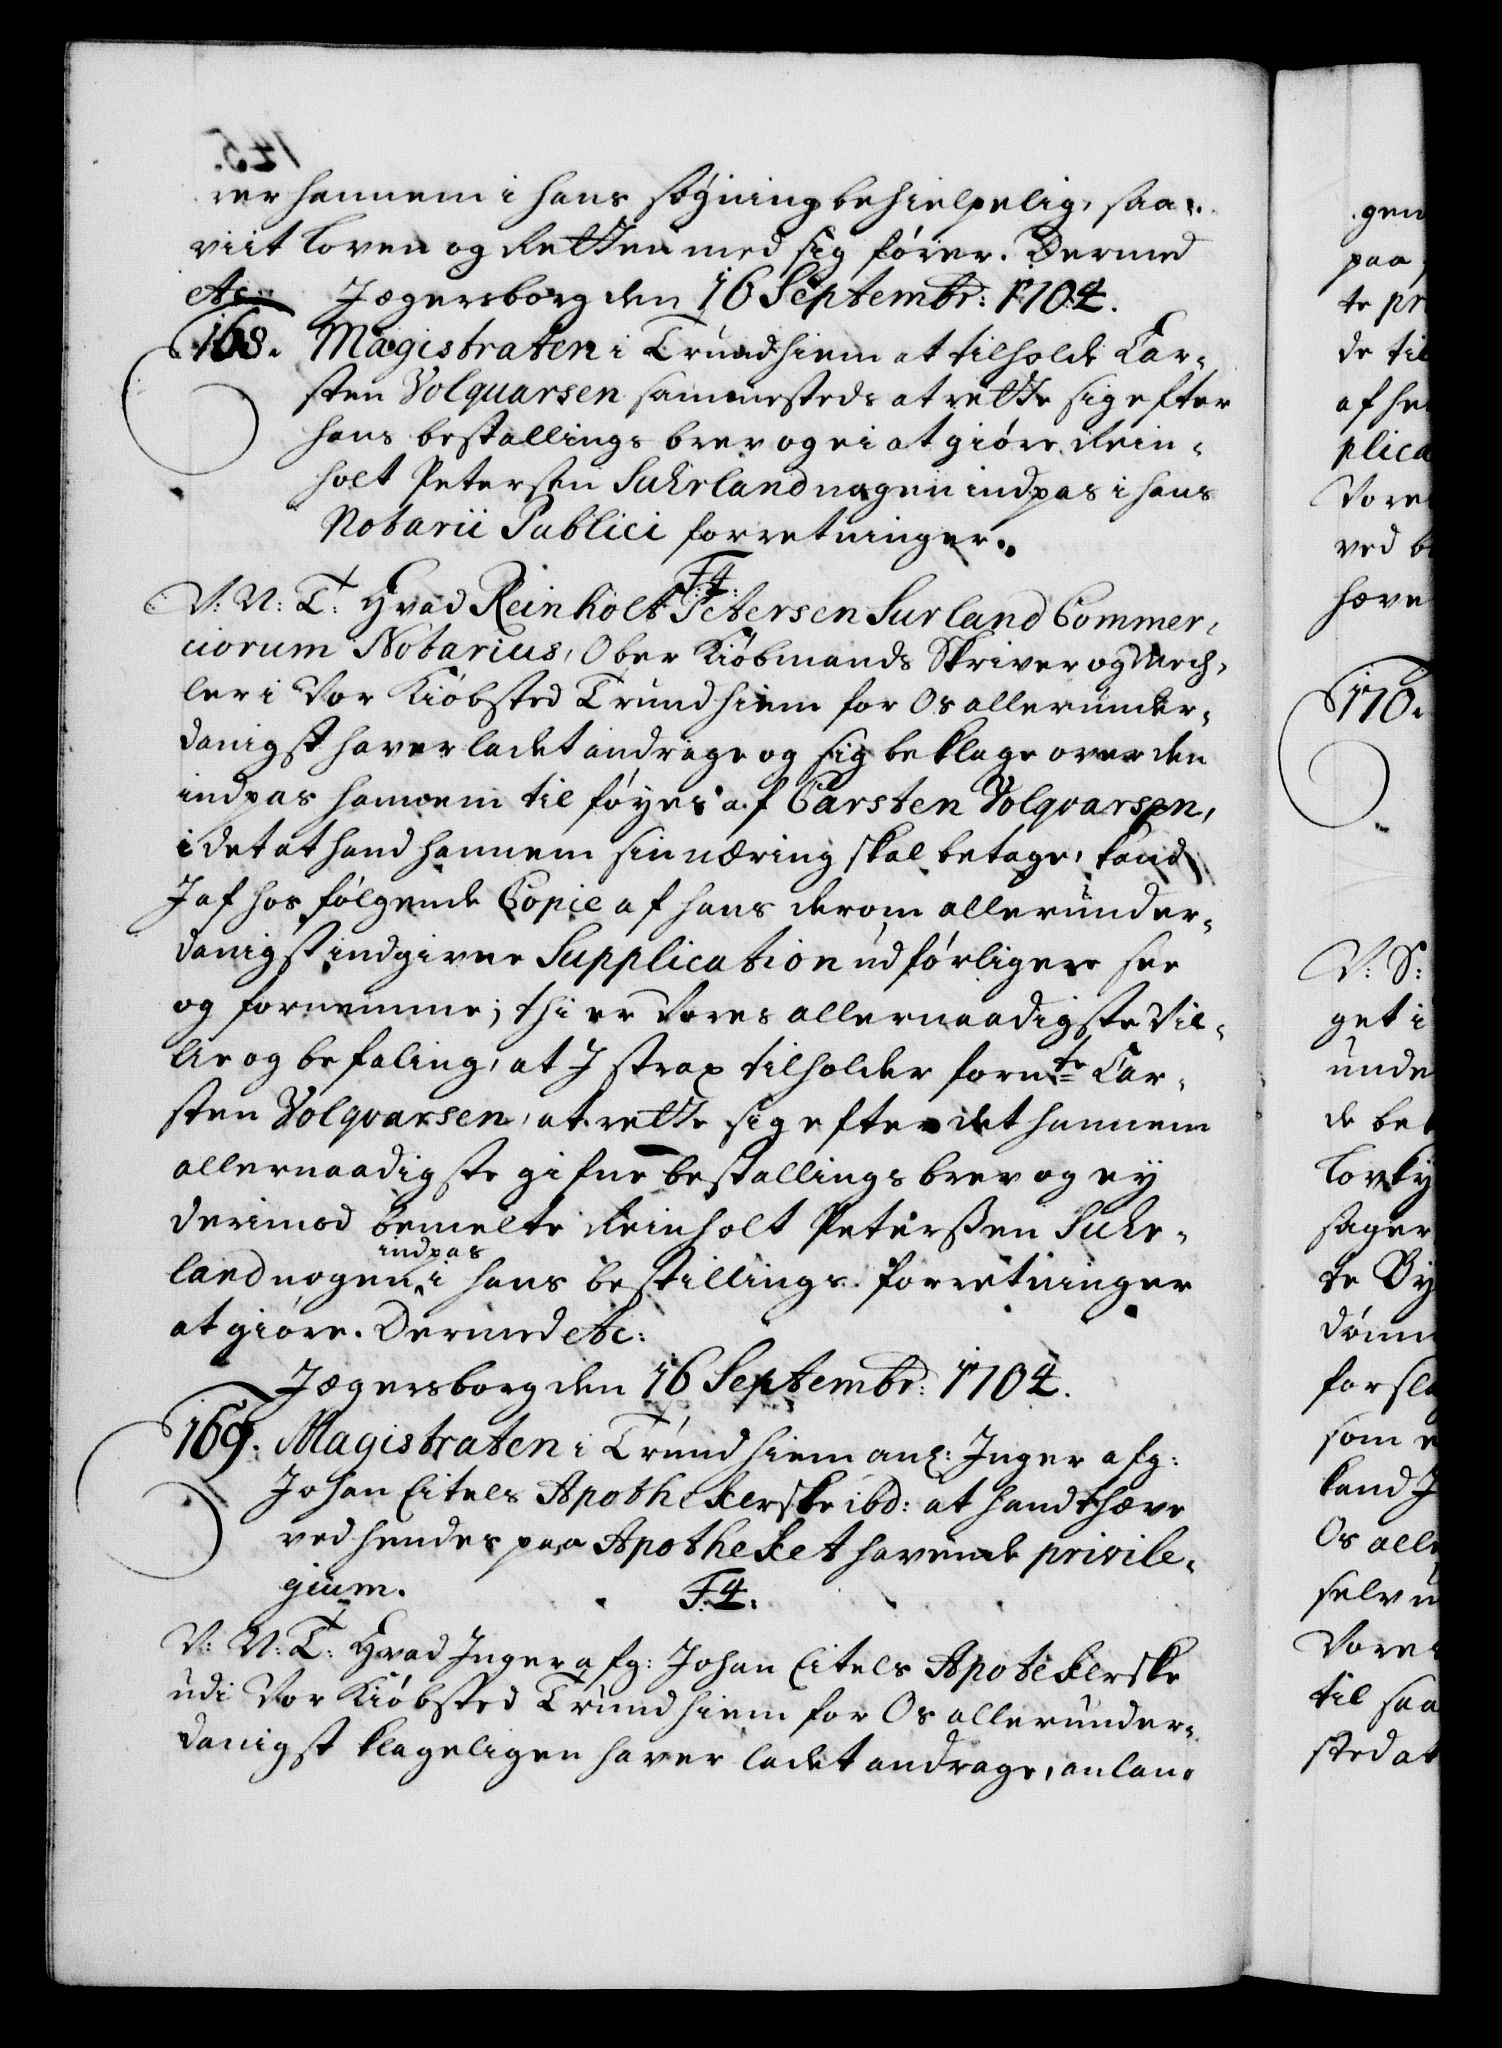 rer hannem i hans søgning behielpelig, saa-
viit loven og Retten med sig fører. Dermed
etc: Jægersborg den 16 Septembr: 1704.
168. Magistraten i Trundhiem at tilholde Car-
sten Volquarsen sammesteds at rette sig efter
hans bestallings brev og ei at giøre Rein-
holt Petersen Suhrland nogen indpas i hans
Notarii Publici forretninger.
F:4:
V: N: T: Hvad Reinholt Petersen Surland Commer-
ciorum Notarius, Ober Kiøbmands Skriver og Mech-
ler i Vor Kiøbsted Trundhiem for Os allerunder-
danigst haver ladet andrage og sig beklage over den
indpas hannem tilføyes af Carsten Volqvarsen,
i det at hand hannem sin næring skal betage, kand
I af hos følgende Copie af hans derom allerunder-
danigst indgivne Supplication udførligere see
og fornemme; thi er Vores allernaadigste Vil-
lie og befaling, at I strax tilholder fornte Car-
sten Volqvarsen, at rette sig efter det hannem
allernaadigste gifne bestallings brev og ey
derimod bemelte Reinholt Peterssen Suhr-
land nogen indpas i hans bestillings forretninger
at giøre. Dermed etc:
Jægersborg den 16 Septembr: 1704.
169. Magistraten i Trundhiem anl: Inger afg:
Johan Eitels Apothekerske ibd: at handthæve
ved hendes paa Apotheket havende privile-
gium.
F:4.
V: N: T: Hvad Inger afg: Johan Eitels Apotekerske
udi Vor Kiøbsted Trundhiem for Os allerunder-
danigst klageligen haver ladet andrage, anlan-
gen
paa
te pr
de til
af he
plica
Vores
ved b
hæve
170.
V: S:
get i
unde
de bet
lovky
sager
te By
dømm
forsla
som e
kand I
Os alle
selv u
Vores
til saa
sted at